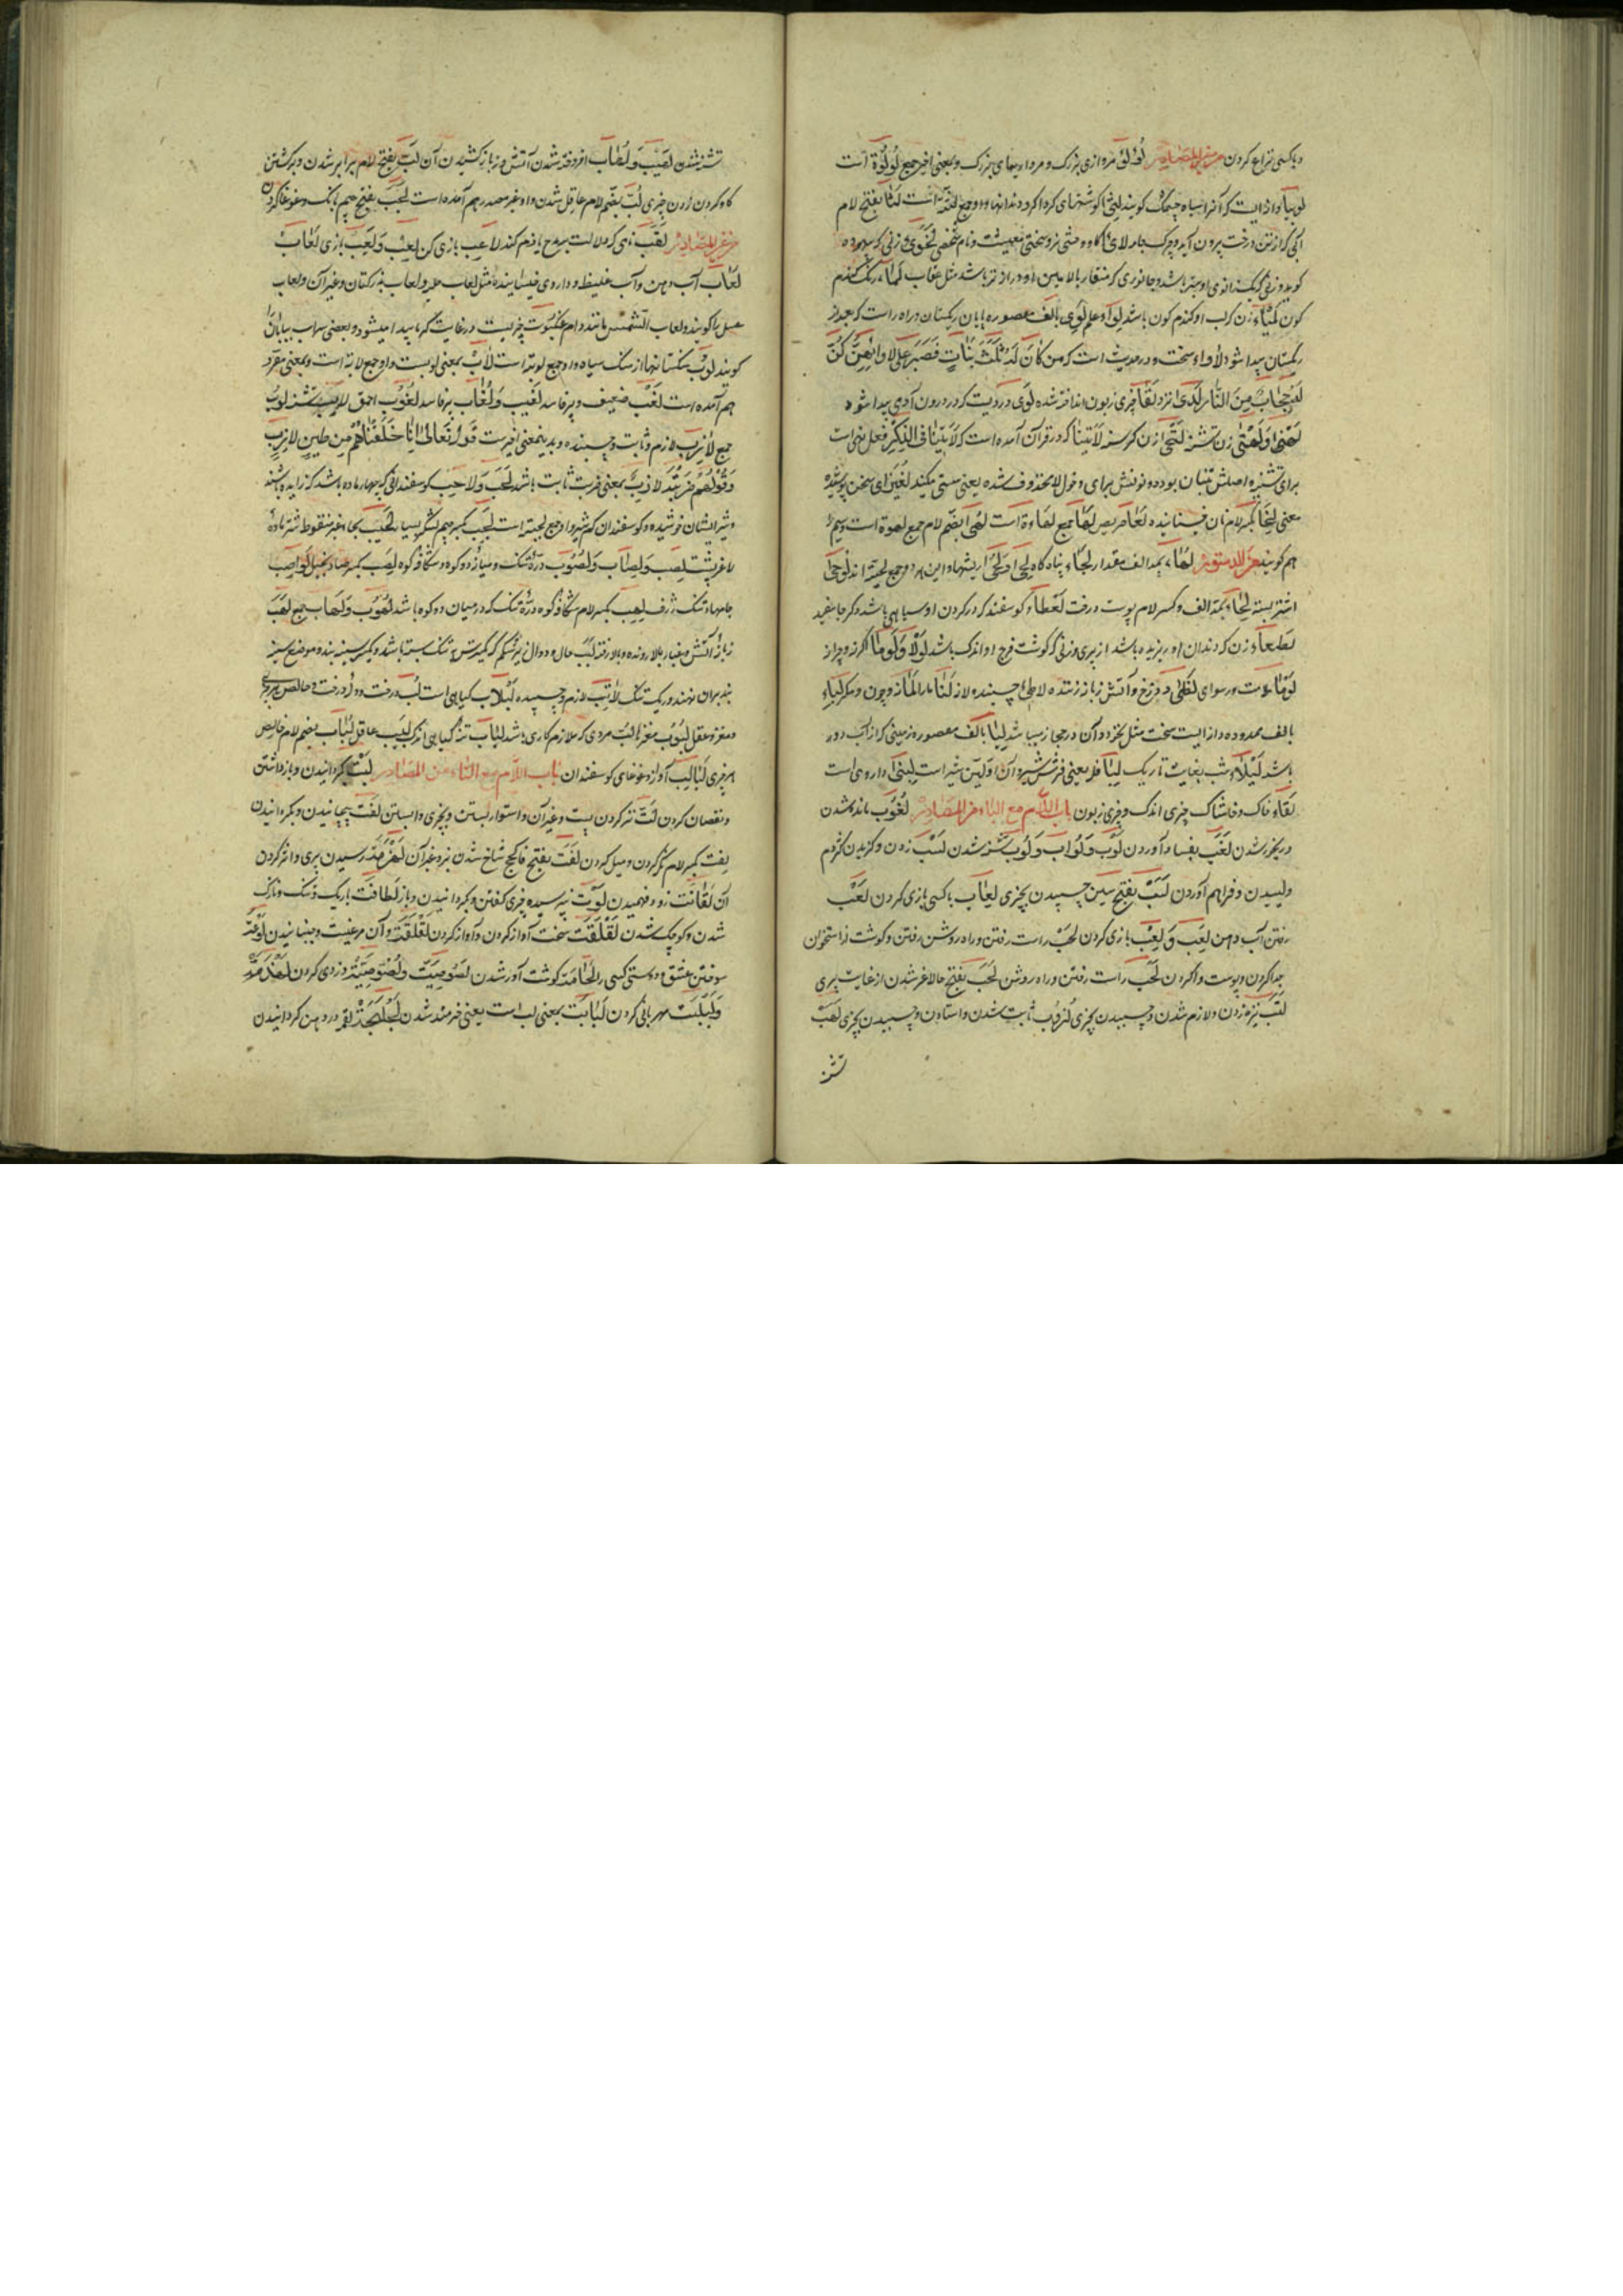 و با کسی نزاع کردن من غیر المصادر لؤلؤ مرواری بزرگ و مرواریدهای بزرگ و بمعنی اخیر جمع لؤلؤة است
لوبیا دانه ایست که آنرا سیاه چشمک گویند لثی گوشتهای گرداگرد دندانها و او جمع لثة است لثا بفتح لام
آبی که از تن درخت بیرون آید و چرک جامه لای گاو وحشی نر و سختی معیشت و نام شخصی
گویند و زنی که یک زانوی او بزرگ باشد و جانوری که منقار بالایین او درازتر باشد مثل عقاب لما رنگ گندم
گون لمیاء زن که لب او گندم گون باشد لوا و علم لوی بالف مقصوره پایان ریگستان و راه راست که بعد از
ریگستان پیدا شود لأواء سخت و در حدیث است که من كان له ثلث بنات فصبر على لأوائهن كن
له حجابا من النار لدی نزد لقا چیزی زبون انداخته شده لوی دردیست که در درون آدمی پیدا شود
زن تشنه لتی آن زن که در قرآن آمده است که لا تنیا فی الذکر فعل نهی است
برای تثنیه اصلش تنیان بوده و نونش برای دخول لا محذوف شده یعنی سستی مکنید لغیزای سخن پوشیده
معنی لخا بکسر لام نان خیسانیده لعا حریص لها جمع لهاة است لهی بضم لام جمع لهوة است و سیم
هم گویند لهاء بمد الف مقدار لجاء پناه گاه لحی و لحی ریشها و این هر دو جمع لحیة اند
اشتر بسته لحاء بمد الف و کسر لام پوست درخت لعطاء گوسفند که در گردن او سیاهی باشد و دیگر جا سفید
لطعاء زن که دندان او ریزیده باشد از پیری و زنی که گوشت فرج او اندک باشد لولا و لوما اگر نه و چرا نه
لوما ملامت و رسوای لظی دوزخ و آتش زبانه زننده لاطی چسپنده لاز لنا ما را لما نه و چون و مگر لباء
بالف ممدوده دانه ایست سخت مثل نخود و آن در حجاز میباشد لیا بالف مقصوره زمینی که از آب دور
باشد لیلاء شب بغایت تاریک لبا فله یعنی فرشه شیر و آن اولین شیر است لبنی داروی است
لقاء خاک و خاشاک چیزی اندک و چیزی زبون باب اللام مع الباء من المصادر لغوب مانده شدن
و رنجور شدن لغب بفساد آوردن لوب و لواب و لوب تشنه شدن لسب زدن و گزیدن کژدم
و لیسیدن و فراهم آوردن لسب بفتح سین چسپیدن بچیزی لعاب با کسی بازی کردن لعب
رفتن آب دهن لعب و لعب بازی کردن لحب راست رفتن و راه روشن رفتن و گوشت از استخوان
جدا کردن و پوست وا کردن لحب راست رفتن و راه روشن لحب بفتح حا لاغر شدن از غایت پیری
لتب نیزه زدن و لازم شدن و چسپیدن بچیزی لزوب ثابت شدن و استادن و چسپیدن بچیزی لهب
تشنه
تشنه شدن لهیب و لهاب افروخته شدن آتش و زبانه کشیدن آن لبب بفتح لام برابر شدن و برگشتن
کاه کردن زدن چیزی لب بضم لام عاقل شدن و او غیر مصدر هم آمده است لجب بفتح جیم بانگ و غوغا کردن
من غیر المصادر لقب نامی که دلالت بر مدح یا ذم کند لاعب بازی کن لعب و لعب بازی لعاب
لعاب آب دهن و آب غلیظ و داروی خیسانیده مثل لعاب حلبه و لعاب بذر کتان و غیر آن و لعاب
عسل را گویند و لعاب الشمس مانند دام عنکبوت چیزیست در غایت گرما پیدا میشود و بعضی سراب بیابان را
گویند لوب سنگستانها از سنگ سیاه و او جمع لوبة است لاب بمعنی لوبست و او جمع لابة است و بمعنی مفرد
هم آمده است لغب ضعیف و پر فاسد لغیب و لغاب پر فاسد لغوب احمق لایب تشنه لوب
جمع لازب لازم و ثابت و چسپنده و بدین معنی اخیرست قوله تعالی انا خلقناهم من طین لازب
و قولهم ضربة لازب بمعنی ضربت ثابت باشد لجب و لاجب گوسفندانی که چهار ماه باشد که زاییده باشند
و شیر ایشان خوشیده و گوسفندان کم شیر و او جمع لجبة است لجب بکسر جیم لشکر بسیار لحیب بحاء غیر منقوط شتر ماده
لاغر پشت لصب و لصاب و لصوب درۀ تنگ و میانۀ دو کوه و شکاف کوه لصب بکسر صاد بخیل لواصب
چاهها تنگ ژرف لهب بکسر لام شکاف کوه و درۀ تنگ که در میان دو کوه باشد لهوب و لهاب جمع لهب
زبانۀ آتش و غبار بالا رونده و بالا رفته لبب حال و دوال زیر شکم که بر سینه بندند و موضع سینه
بند بر آن نهند و ریگ تنک لاتب لازم و چسپیده لبلاب گیاهی است لب درخت و دل درخت و خالص هر چیزی
و مغز و عقل لبوب مغزها لب مردی که ملازم کاری باشد لباب گیاهی اندک لبیب عاقل لباب بضم لام خالص
هر چیزی لبالب آواز و غوغای گوسفندان باب اللام مع التاء من المصادر لیت گردانیدن و بازداشتن
و نقصان کردن لت تر کردن پست و غیر آن و استوار بستن و بچیزی وابستن لفت پیچانیدن و بگردانیدن
لفت بکسر لام نگر کردن و میل کردن لفت بفتح فا کج شاخ شدن بز و غیر آن رسیدن پیری و اثر کردن
آن لقانت زود فهمیدن لوت نپرسیده چیزی گفتن و بگردانیدن و باز لطافت باریک و تنک و نازک
شدن و کوچک شدن لقلقت سخت آواز کردن و آواز کردن لقلقة و آن مرغیست و جنبانیدن لوعة
سوختن عشق و دوستی کسی را لحامة گوشت آور شدن لصوصیت و لصوصیة دزدی کردن
و لبلبت مهربانی کردن لبابت بمعنی لب است یعنی خردمند شدن لجلجة لقمه در دهن گردانیدن